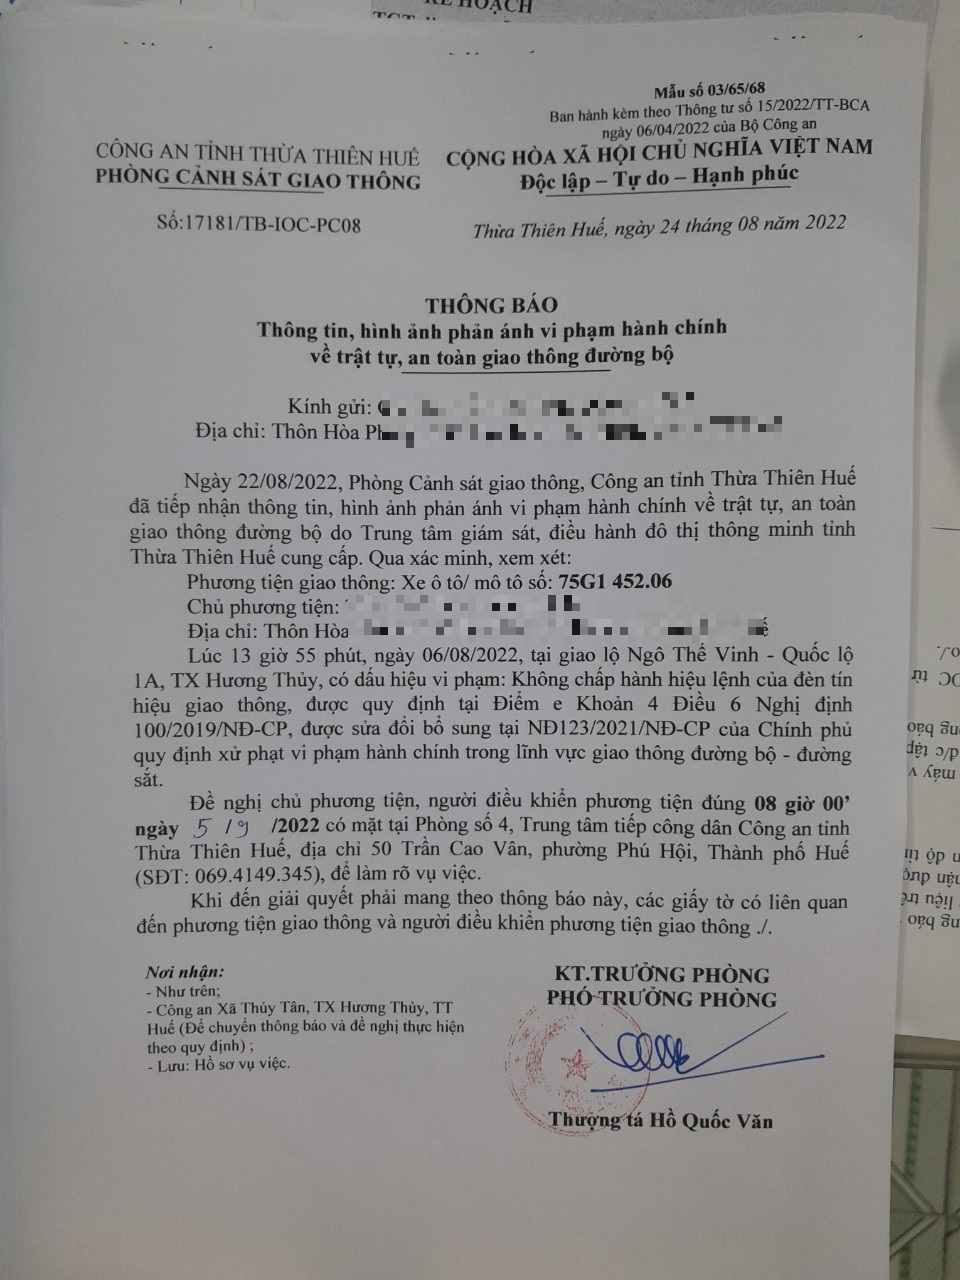 KẾ HOẠCH
Mẫu số 03/65/68
Ban hành kèm theo Thông tư số 15/2022/TT-BCA
ngày 06/04/2022 của Bộ Công an
CÔNG AN TỈNH THỪA THIÊN HUẾ
PHÒNG CẢNH SÁT GIAO THÔNG
CỘNG HÒA XÃ HỘI CHỦ NGHĨA VIỆT NAM
Độc lập – Tự do – Hạnh phúc
Số:17181/TB-IOC-PC08
Thừa Thiên Huế, ngày 24 tháng 08 năm 2022
THÔNG BÁO
Thông tin, hình ảnh phản ánh vi phạm hành chính
về trật tự, an toàn giao thông đường bộ
Kính gửi:
Địa chỉ: Thôn Hòa
Ngày 22/08/2022, Phòng Cảnh sát giao thông, Công an tỉnh Thừa Thiên Huế
đã tiếp nhận thông tin, hình ảnh phản ánh vi phạm hành chính về trật tự, an toàn
giao thông đường bộ do Trung tâm giám sát, điều hành đô thị thông minh tỉnh
Thừa Thiên Huế cung cấp. Qua xác minh, xem xét:
Phương tiện giao thông: Xe ô tô/ mô tô số: 75G1 452.06
Chủ phương tiện:
Địa chỉ: Thôn Hòa
Lúc 13 giờ 55 phút, ngày 06/08/2022, tại giao lộ Ngô Thế Vinh - Quốc lộ
1A, TX Hương Thủy, có dấu hiệu vi phạm: Không chấp hành hiệu lệnh của đèn tín
hiệu giao thông, được quy định tại Điểm e Khoản 4 Điều 6 Nghị định
100/2019/NĐ-CP, được sửa đổi bổ sung tại NĐ123/2021/NĐ-CP của Chính phủ
quy định xử phạt vi phạm hành chính trong lĩnh vực giao thông đường bộ - đường
sắt.
Đề nghị chủ phương tiện, người điều khiển phương tiện đúng 08 giờ 00’
ngày 5 /9 /2022 có mặt tại Phòng số 4, Trung tâm tiếp công dân Công an tỉnh
Thừa Thiên Huế, địa chỉ 50 Trần Cao Vân, phường Phú Hội, Thành phố Huế
(SĐT: 069.4149.345), để làm rõ vụ việc.
Khi đến giải quyết phải mang theo thông báo này, các giấy tờ có liên quan
đến phương tiện giao thông và người điều khiển phương tiện giao thông ./.
Nơi nhận:
- Như trên;
- Công an Xã Thủy Tân, TX Hương Thủy, TT
Huế (Để chuyển thông báo và đề nghị thực hiện
theo quy định) ;
- Lưu: Hồ sơ vụ việc.
KT.TRƯỞNG PHÒNG
PHÓ TRƯỞNG PHÒNG
Thượng tá Hồ Quốc Văn